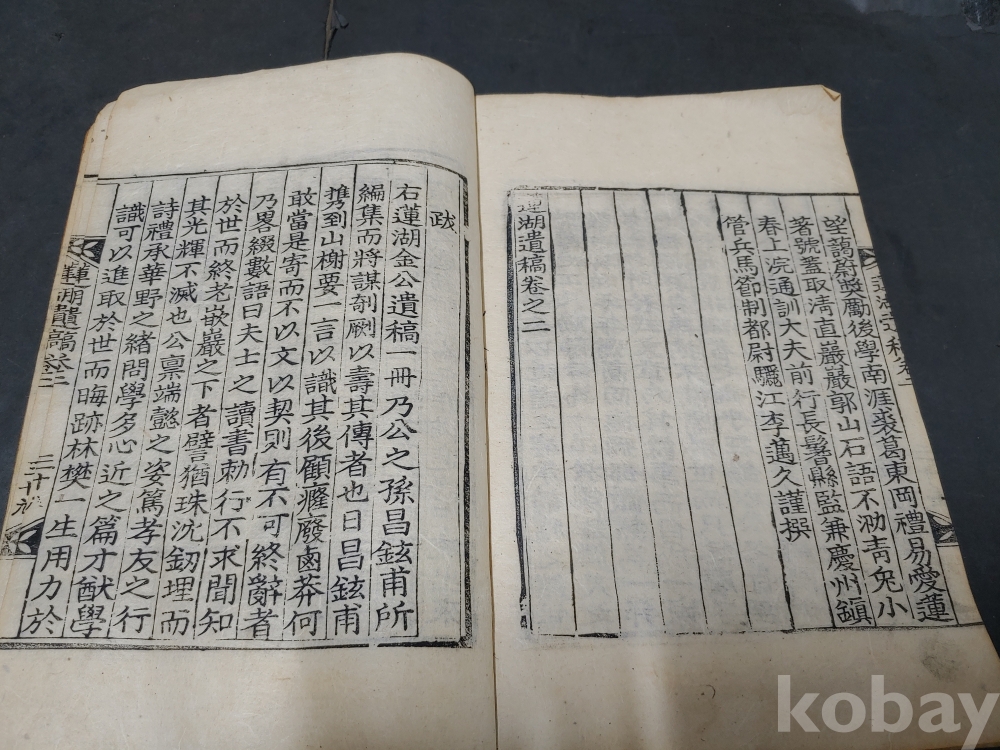 望藹蔚奬勵後學南涯裘葛東岡禮易愛蓮
著號蓋取淸直巖巖郭山石語不泐靑兔小
春上浣通訓大夫前行長鬐縣監兼慶州鎭
管兵馬節制都尉驪江李邁久謹撰
蓮湖遺稿卷之二
跋
右蓮湖金公遺稿一冊乃公之孫昌鉉甫所
編集而將謀剞劂以壽其傳者也日昌鉉甫
携到山榭要一言以識其後顧癃廢鹵莽何
敢當是寄而不以文以契則有不可終辭者
乃畧綴數語曰夫士之讀書勅行不求聞知
於世而終老嵌巖之下者譬猶珠沉釰埋而
其光輝不滅也公禀端懿之姿篤孝友之行
詩禮承華野之緖問學多心近之篇才猷學
識可以進取於世而晦跡林樊一生用力於
蓮湖遺稿 卷二 三十九
kobay